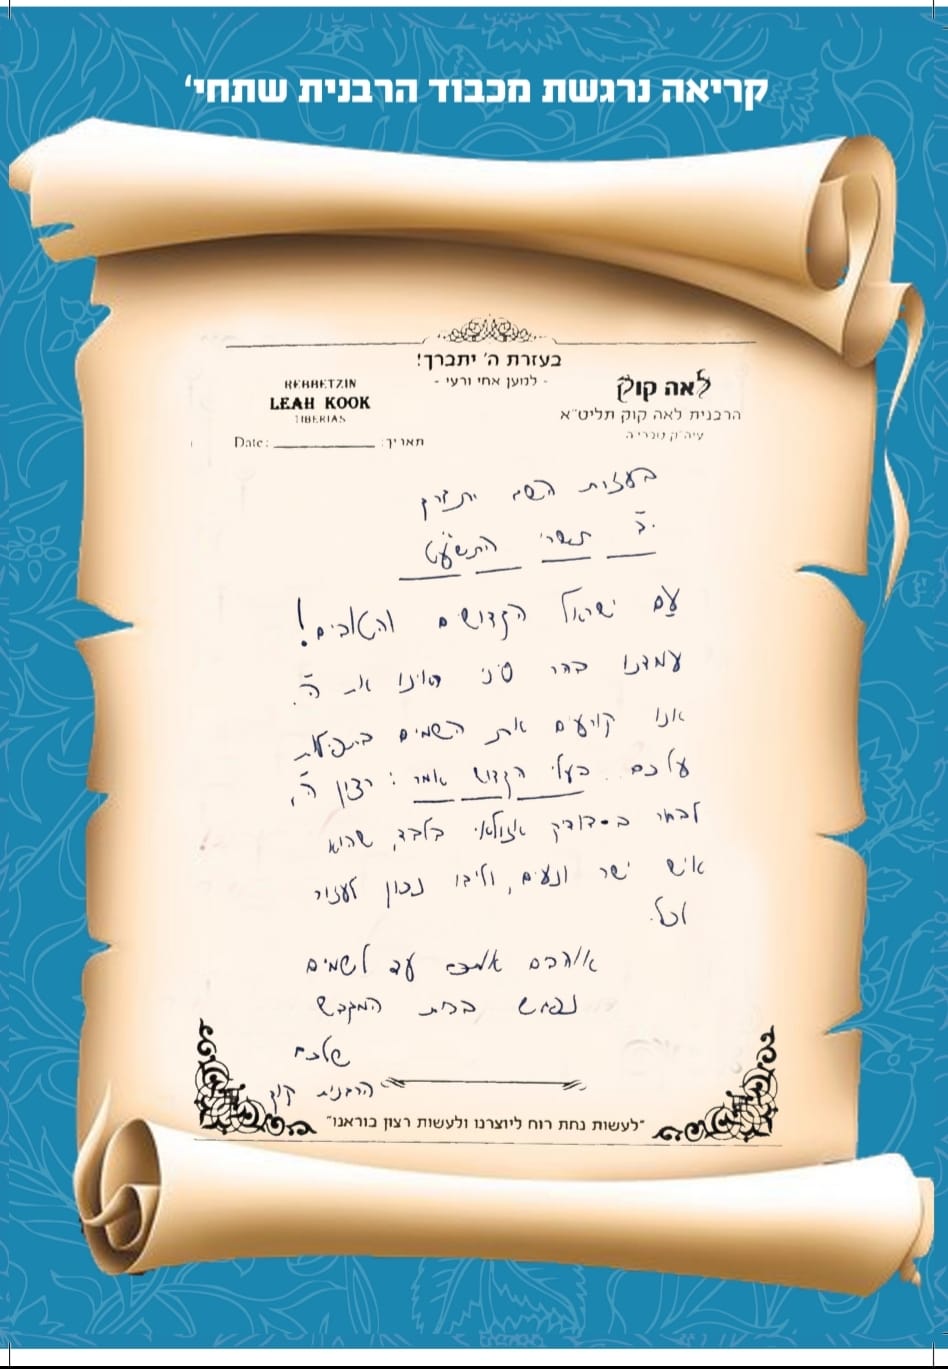 קריאה נרגשת מכבוד הרבנית שתחי'
בעזרת ה' יתברך!
- למען אחי ורעי -
לאה קוק
הרבנית לאה קוק תליט"א
עיה"ק טבריה
REBBETZIN
LEAH KOOK
TIBERIAS
תאריך: Date:
בעזרת השם יתברך
ב' תשרי התשע"ט
עם ישראל הקדושים והטובים!
עמדנו בהר סיני ראינו את ה'.
אנו קורעים את השמים בתפילות
עליכם. בעלי הקדוש אמר: רצון ה',
לבחור ב אזולאי בלבד, שהוא
איש ישר ונעים, וליבו נכון לעזור
לכל.
אוהבים אתכם עד לשמים
נפגש בבית המקדש
שלכם
הרבנית קוק
"לעשות נחת רוח ליוצרנו ולעשות רצון בוראנו"